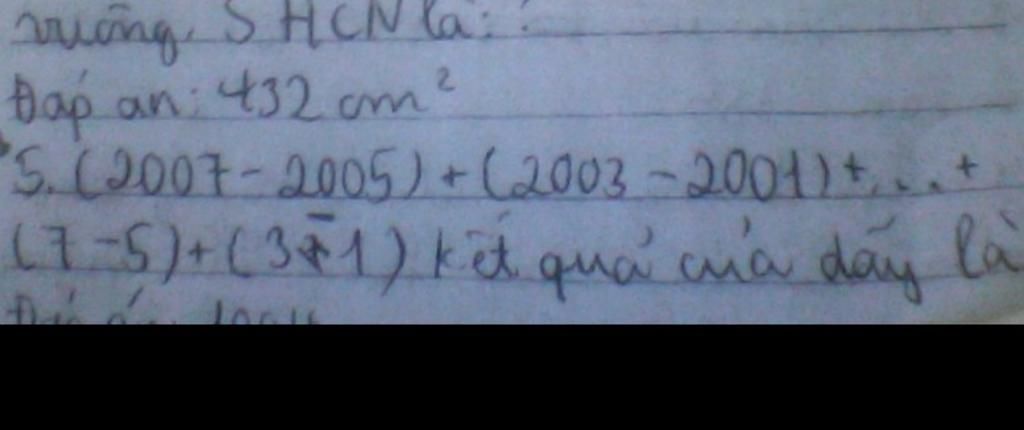 vuông. SHCN là: ?
Đáp án: 432 cm²
5. (2007 - 2005) + (2003 - 2001) + ... +
(7 - 5) + (3 - 1) kết quả của dãy là